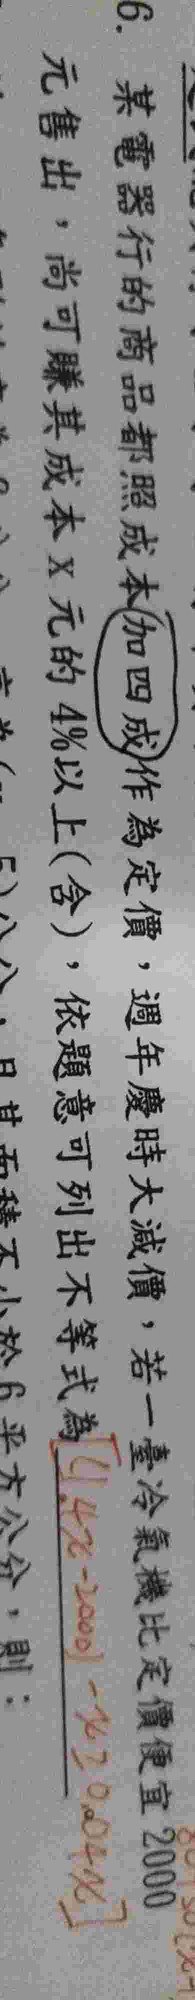 6. 某電器行的商品都照成本加四成作為定價，週年慶時大減價，若一臺冷氣機比定價便宜 2000
元售出，尚可賺其成本 X 元的 4%以上(含)，依題意可列出不等式為[(1.4x-2000)-x≥0.04x]
平方公分，則：